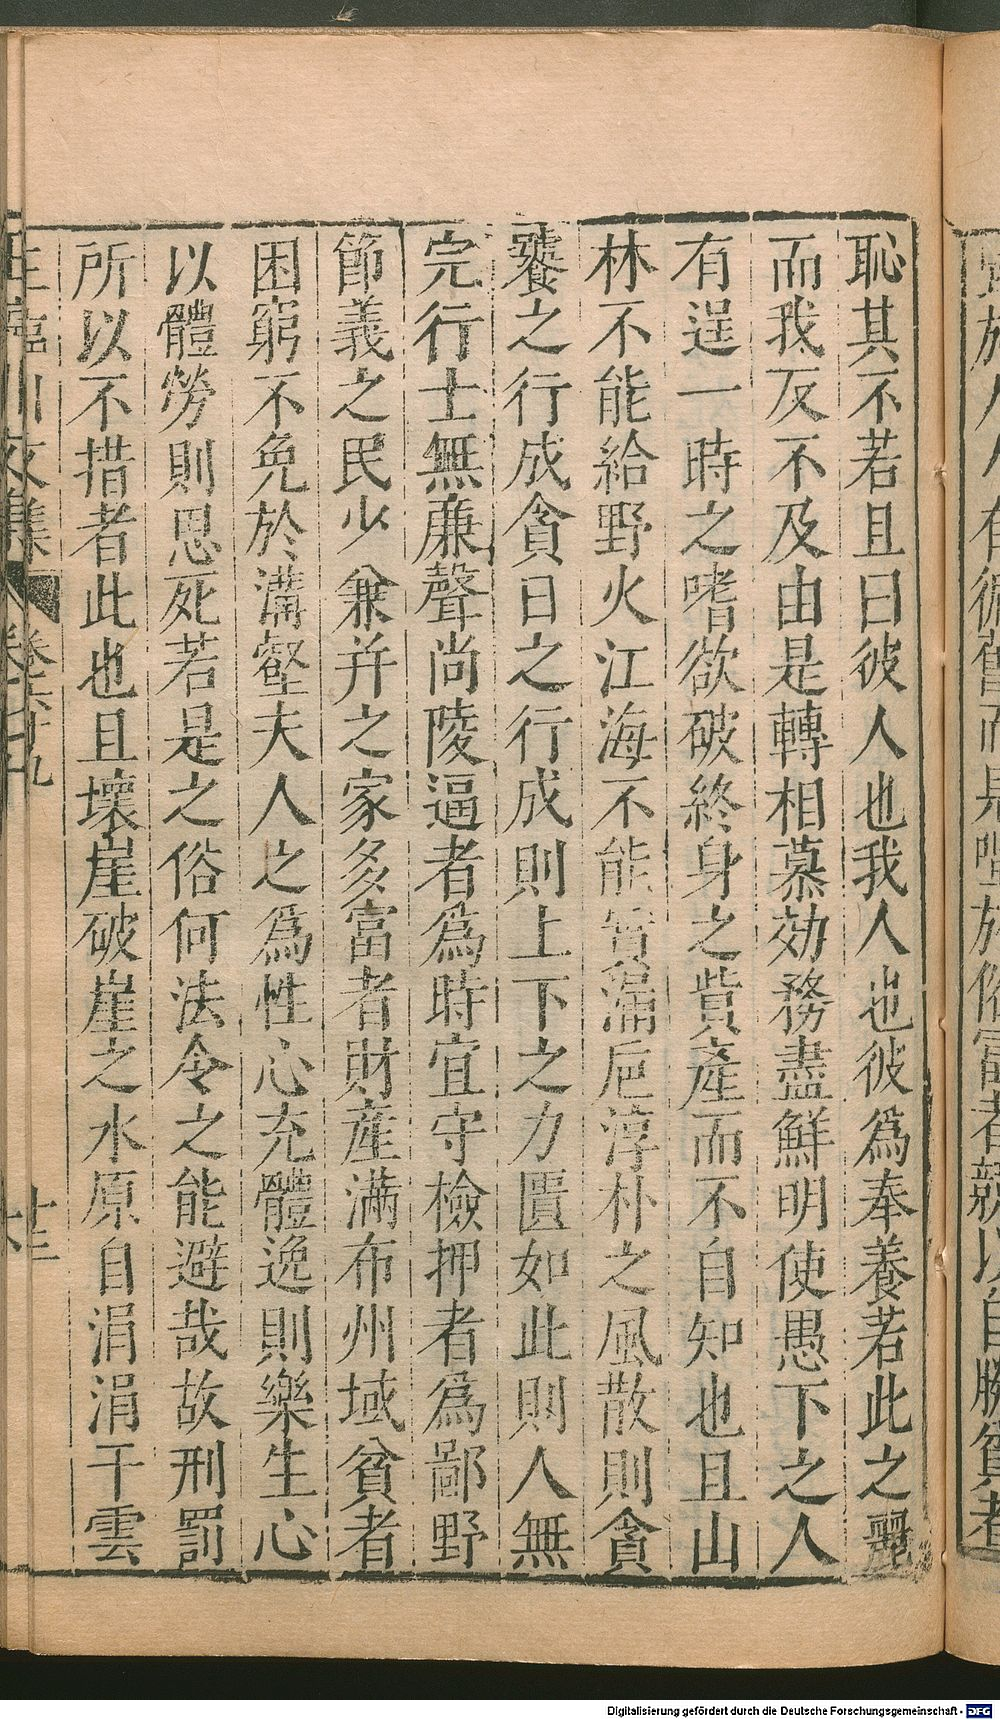 恥其不若且曰彼人也我人也彼爲奉養若此之麗
而我反不及由是轉相慕効務盡鮮明使愚下之人
有逞一時之嗜欲破終身之貲產而不自知也且山
林不能給野火江海不能實漏巵淳朴之風散則貪
饕之行成貪日之行成則上下之力匱如此則人無
完行士無亷聲尚陵逼者爲時宜守檢押者爲鄙野
節義之民少兼并之家多富者財產滿布州域貧者
困窮不免於溝壑夫人之爲性心充體逸則樂生心
以體勞則思死若是之俗何法令之能避哉故刑罰
所以不措者此也且壞崖破崖之水原自涓涓干雲
王臨川文集 卷六十九 十三
Digitalisierung gefördert durch die Deutsche Forschungsgemeinschaft - DFG